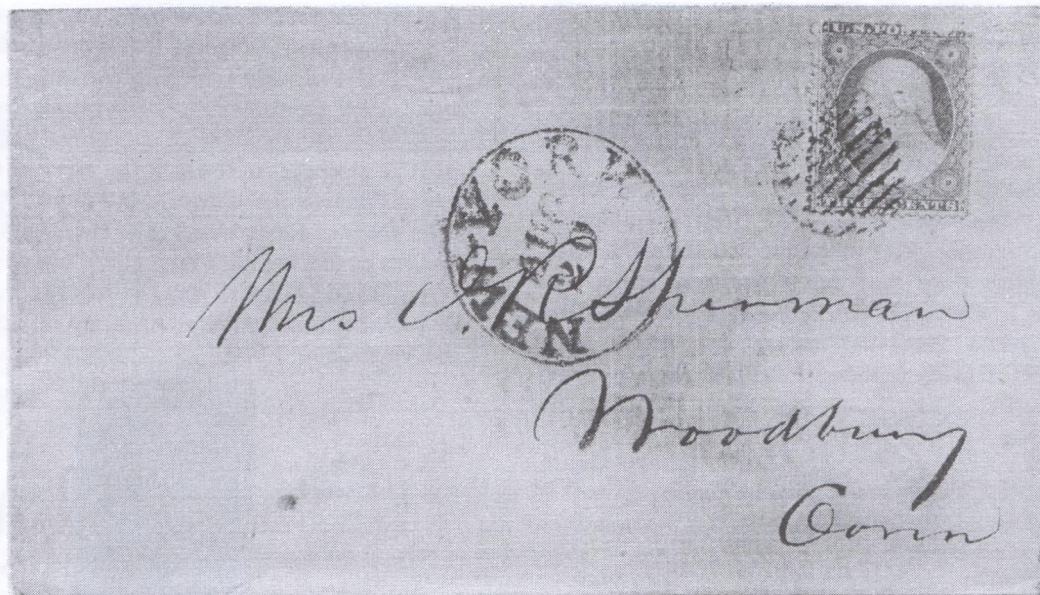 NEW YORK
CENTS
Mrs Sherman
Woodbury
Conn